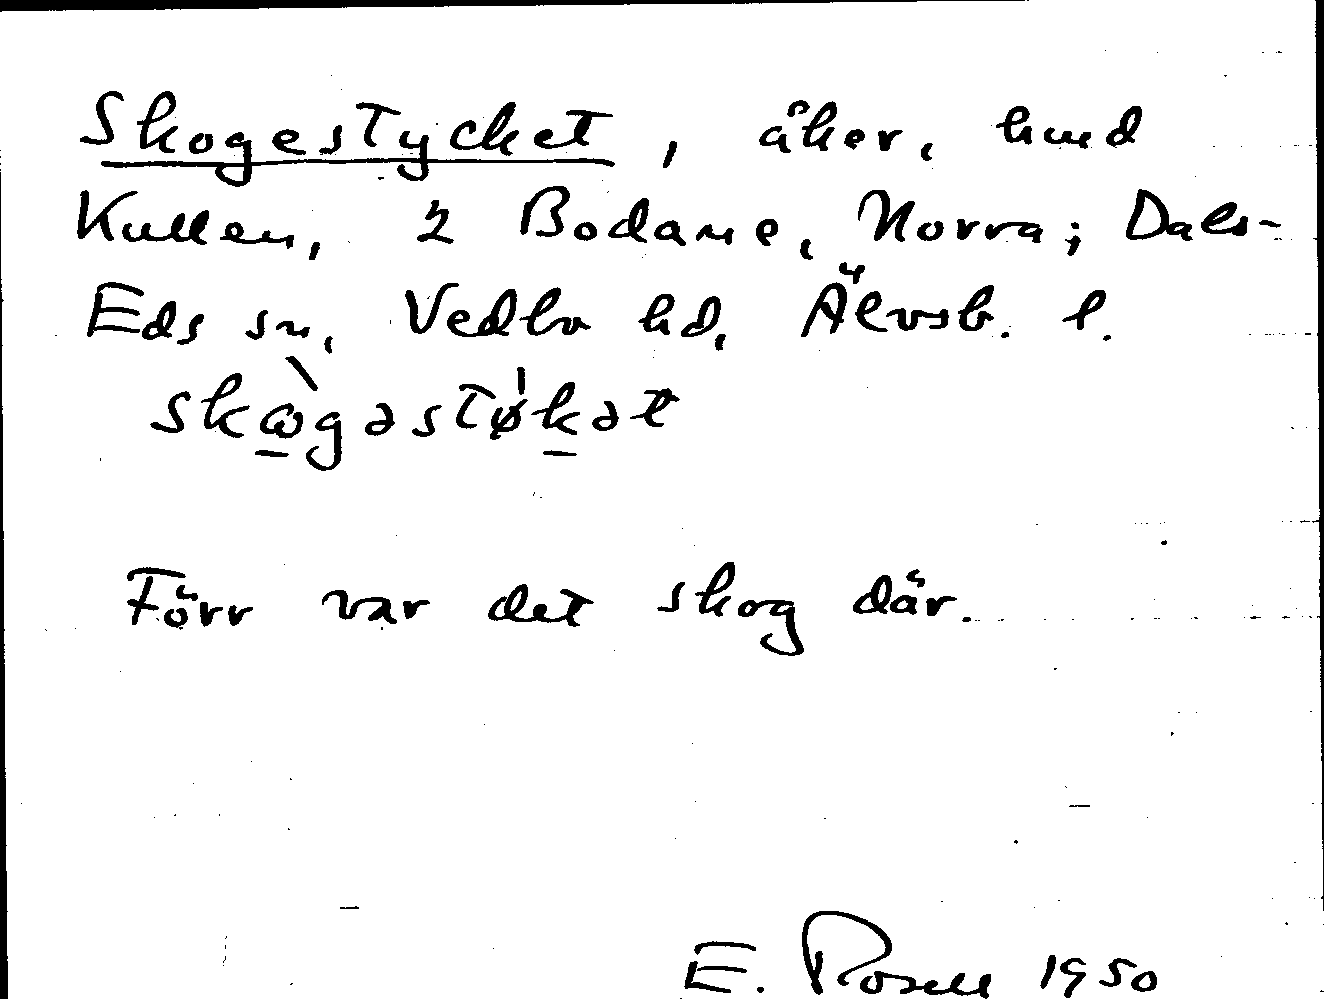 Skogestycket, åker, hmd
Kullen, 2 Bodane, Norra; Dals-
Eds sn, Vedbo hd, Älvsb. l.
skωgəstøkət
Förr var det skog där.
E. Rosell 1950